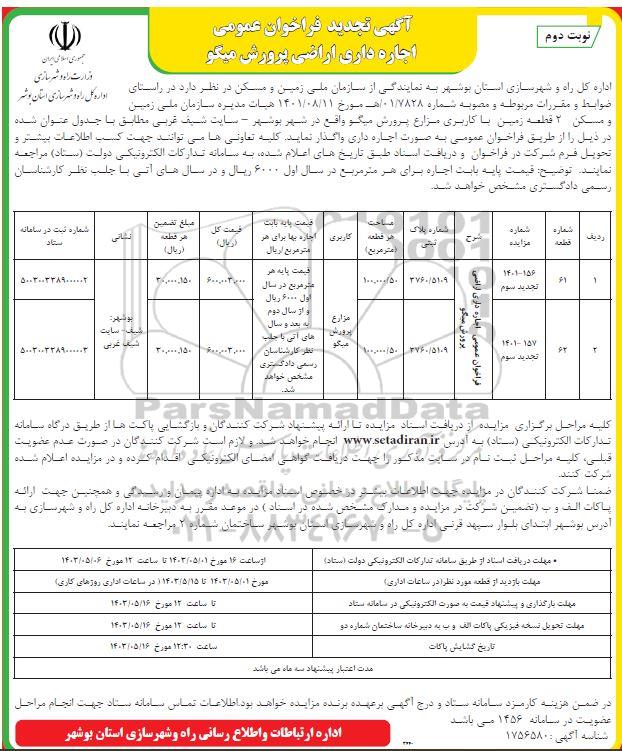 آگهی تجدید فراخوان عمومی
اجاره داری اراضی پرورش میگو
نوبت دوم
جمهوری اسلامی ایران
وزارت راه و شهرسازی
اداره کل راه و شهرسازی استان بوشهر
اداره کل راه و شهرسازی استان بوشهر به نمایندگی از سازمان ملی زمین و مسکن در نظر دارد در راستای
ضوابط و مقررات مربوطه و مصوبه شماره ۰۱/۷۸۲۸/هـ مورخ ۱۴۰۱/۰۸/۱۱ هیات مدیره سازمان ملی زمین
و مسکن ۲ قطعه زمین با کاربری مزارع پرورش میگو واقع در شهر بوشهر – سایت شیف غربی مطابق با جدول عنوان شده
در ذیل را از طریق فراخوان عمومی به صورت اجاره داری واگذار نماید. کلیه تعاونی ها می توانند جهت کسب اطلاعات بیشتر و
تحویل فرم شرکت در فراخوان و دریافت اسناد طبق تاریخ های اعلام شده، به سامانه تدارکات الکترونیکی دولت (ستاد) مراجعه
نمایند. توضیح: قیمت پایه بابت اجاره برای هر مترمربع در سال اول ۶۰۰۰ ریال و در سال های آتی با جلب نظر کارشناسان
رسمی دادگستری مشخص خواهد شد.
ردیف | شماره قطعه | شماره مزایده | شرح | شماره پلاک ثبتی | مساحت هر قطعه (مترمربع) | کاربری | قیمت پایه بابت اجاره بها برای هر مترمربع/ریال | قیمت کل (ریال) | مبلغ تضمین هر قطعه (ریال) | نشانی | شماره ثبت در سامانه ستاد
۱ | ۶۱ | ۱۴۰۱-۱۵۶ تجدید سوم | فراخوان عمومی اجاره داری اراضی پرورش میگو | ۳۷۶۰/۵۱۰۹ | ۱۰۰,۰۰۰/۵۰ | مزارع پرورش میگو | قیمت پایه هر مترمربع در سال اول ۶۰۰۰ ریال و از سال دوم به بعد و سال های آتی با جلب نظر کارشناسان رسمی دادگستری مشخص خواهد شد. | ۶۰۰,۰۰۳,۰۰۰ | ۳۰,۰۰۰,۱۵۰ | بوشهر: شیف- سایت شیف غربی | ۵۰۰۳۰۰۳۳۸۹۰۰۰۰۰۲
۲ | ۶۲ | ۱۴۰۱-۱۵۷ تجدید سوم | ۳۷۶۰/۵۱۰۹ | ۱۰۰,۰۰۰/۵۰ | ۶۰۰,۰۰۳,۰۰۰ | ۳۰,۰۰۰,۱۵۰ | ۵۰۰۳۰۰۳۳۸۹۰۰۰۰۰۳
ParsNamadData
کلیه مراحل برگزاری مزایده از دریافت اسناد مزایده تا ارائه پیشنهاد شرکت کنندگان و بازگشایی پاکت ها از طریق درگاه سامانه
تدارکات الکترونیکی (ستاد) به آدرس www.setadiran.ir انجام خواهد شد. و لازم است شرکت کنندگان در صورت عدم عضویت
قبلی، کلیه مراحل ثبت نام در سایت مذکور را جهت دریافت گواهی امضای الکترونیکی اقدام کرده و در مزایده اعلام شده
شرکت کنند.
ضمنا شرکت کنندگان در مزایده جهت اطلاعات بیشتر در خصوص اسناد مزایده به اداره پیمان و رسیدگی و همچنین جهت ارائه
پاکات الف و ب (تضمین شرکت در مزایده و مدارک مشخص شده در اسناد) در موعد مقرر به دبیرخانه اداره کل راه و شهرسازی به
آدرس بوشهر ابتدای بلوار سپهد قرنی اداره کل راه و شهرسازی استان بوشهر ساختمان شماره ۲ مراجعه نمایند.
۰۲۱-۸۸۳۴۹۶۷۰-۵
• مهلت دریافت اسناد از طریق سامانه تدارکات الکترونیکی دولت (ستاد) | از ساعت ۱۶ مورخ ۱۴۰۳/۰۵/۰۱ تا ساعت ۱۲ مورخ ۱۴۰۳/۰۵/۰۶
مهلت بازدید از قطعه مورد نظر(در ساعات اداری) | مورخ ۱۴۰۳/۰۵/۰۱ تا ۱۴۰۳/۵/۱۵ ( در ساعات اداری روزهای کاری)
مهلت بارگذاری و پیشنهاد قیمت به صورت الکترونیکی در سامانه ستاد | تا ساعت ۱۲ مورخ ۱۴۰۳/۰۵/۱۶
مهلت تحویل نسخه فیزیکی پاکات الف و ب به دبیرخانه ساختمان شماره دو | تا ساعت ۱۲ مورخ ۱۴۰۳/۰۵/۱۶
تاریخ گشایش پاکات | ساعت ۱۲:۳۰ مورخ ۱۴۰۳/۰۵/۱۶
مدت اعتبار پیشنهاد سه ماه می باشد
در ضمن هزینه کارمزد سامانه ستاد و درج آگهی برعهده برنده مزایده خواهد بود.اطلاعات تماس سامانه ستاد جهت انجام مراحل
عضویت در سامانه ۱۴۵۶ می باشد
شناسه آگهی: ۱۷۵۶۵۸۰
اداره ارتباطات واطلاع رسانی راه وشهرسازی استان بوشهر